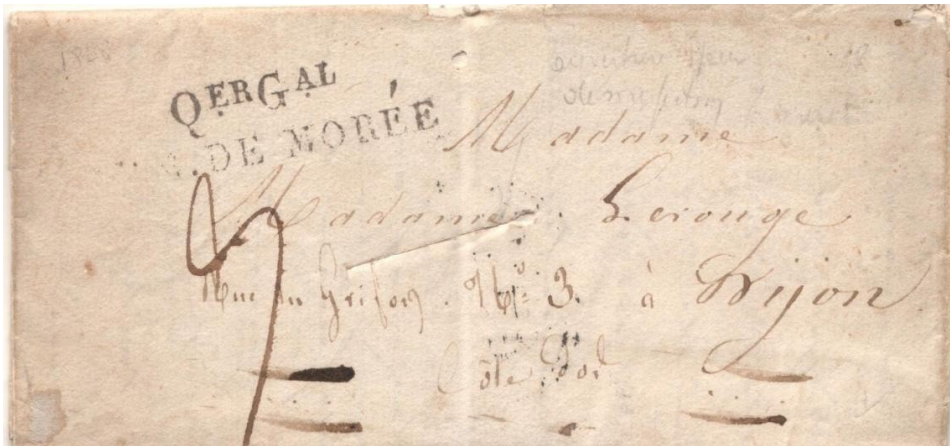 1828
QERGAL
DE MORÉE
Madame
Madame Lerouge
Rue du Griffon N° 3. à Dijon
Côte d'or